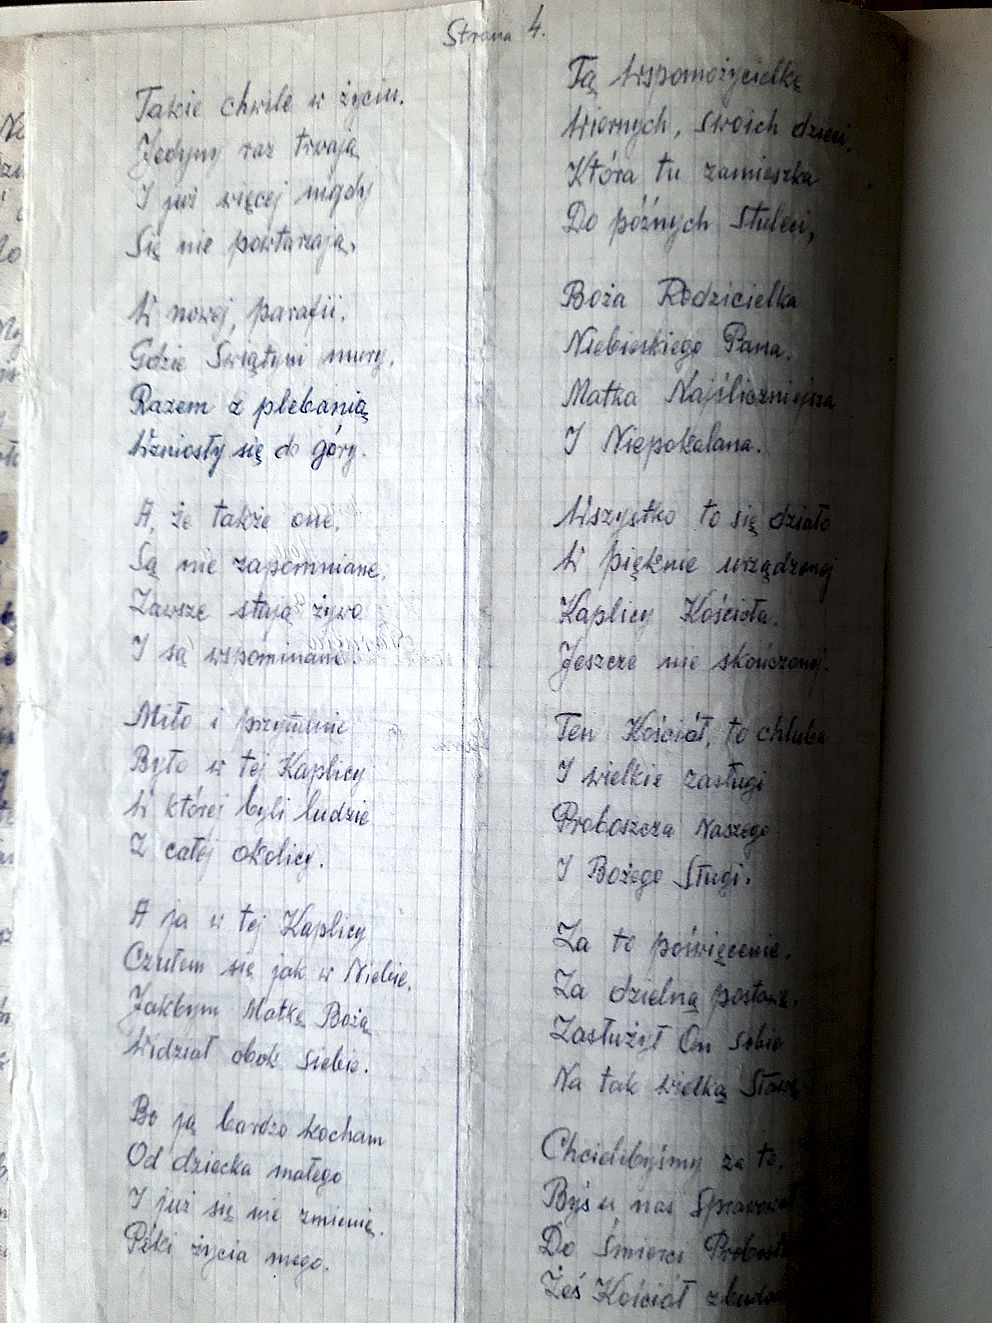 Strona 4.
Takie chwile w życiu.
Jedyny raz trwają
I już więcej nigdy
Się nie powtarzają.
W nowej, parafii.
Gdzie Świątyni mury.
Razem z plebanią
Wzniosły się do góry.
A, że także one.
Są nie zapomniane.
Zawsze stają żywo
I są wspominane
Miło i przytulnie
Było w tej Kaplicy
W której byli ludzie
Z całej okolicy.
A ja w tej Kaplicy
Czułem się jak w Niebie.
Jakbym Matkę Bożą
Widział obok siebie.
Bo ją bardzo kocham
Od dziecka małego
I już się nie zmienię.
Póki życia mego.
Tą Wspomożycielkę
Wiernych, swoich dzieci,
Która tu zamieszka
Do późnych Stuleci,
Boża Rodzicielka
Niebieskiego Pana.
Matka Najśliczniejsza
I Niepokalana.
Wszystko to się działo
W pięknie urządzonej
Kaplicy Kościoła.
Jeszcze nie skończonej.
Ten Kościół, to chluba
I wielkie zasługi
Proboszcza Naszego
I Bożego Sługi.
Za to poświęcenie.
Za dzielną postawę.
Zasłużył On sobie
Na tak wielką Sławę
Chcielibyśmy za to.
Byś u nas
Do śmierci
Żeś Kościół